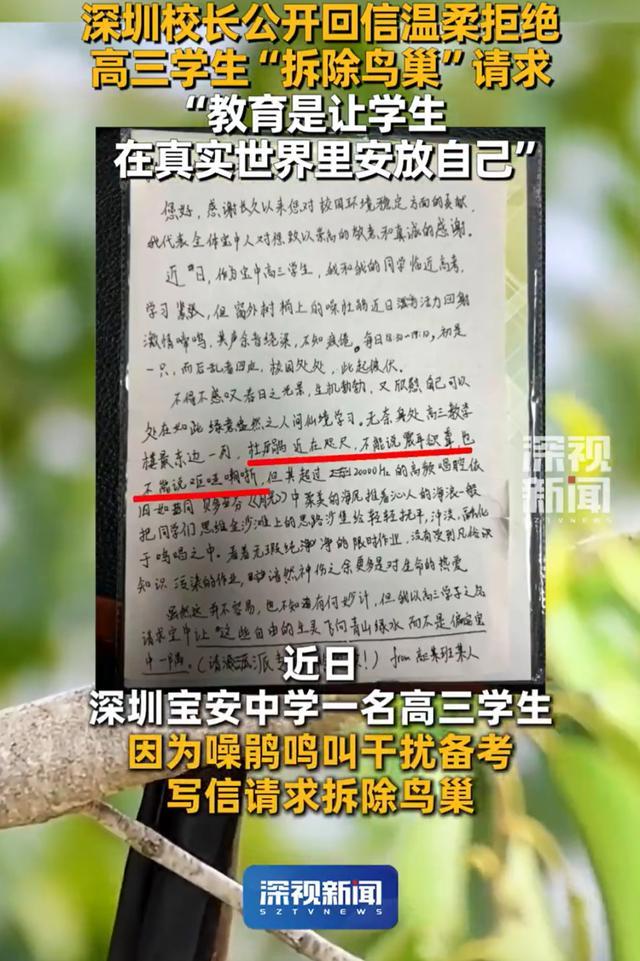 深圳校长公开回信温柔拒绝
高三学生“拆除鸟巢”请求
“教育是让学生
在真实世界里安放自己”
您好，感谢长久以来您对校园环境稳定方面的贡献，
我代表全体宝中人对您致以崇高的敬意和真诚的感谢。
近日，作为宝中高三学生，我和我的同学临近高考，
学习紧张，但窗外树梢上的噪杜鹃近日
激情啼鸣，其声余音绕梁，不知疲倦。每日
一只，而后乱者四应，校园处处，此起彼伏。
不得不感叹春日之光景，生机勃勃，又欣慰自己可以
处在如此绿意盎然之人间仙境学习。无奈身处高三教学
楼最东边一列，杜鹃近在咫尺，不能说震耳欲聋，也
不能说呕哑嘲哳，但其超过20000Hz的高频唱腔依
旧如
把同学们思维金沙滩上的思路沙堡给轻轻抚平，冲淡，融化
于鸣唱之中。看着无瑕纯净的限时作业，没有受到凡俗
知识污染的作业，黯然神伤之余更多是对生命的热爱
虽然这并不容易，也不知道有何妙计，但我以高三学子之名
请求宝中让“这些自由的生灵飞向青山绿水而不是偏安宝
中一隅。（请 派 ！）from 高三某班某人
深视
新闻
近日
深圳宝安中学一名高三学生
因为噪鹃鸣叫干扰备考
写信请求拆除鸟巢
深视新闻
SZTVNEWS